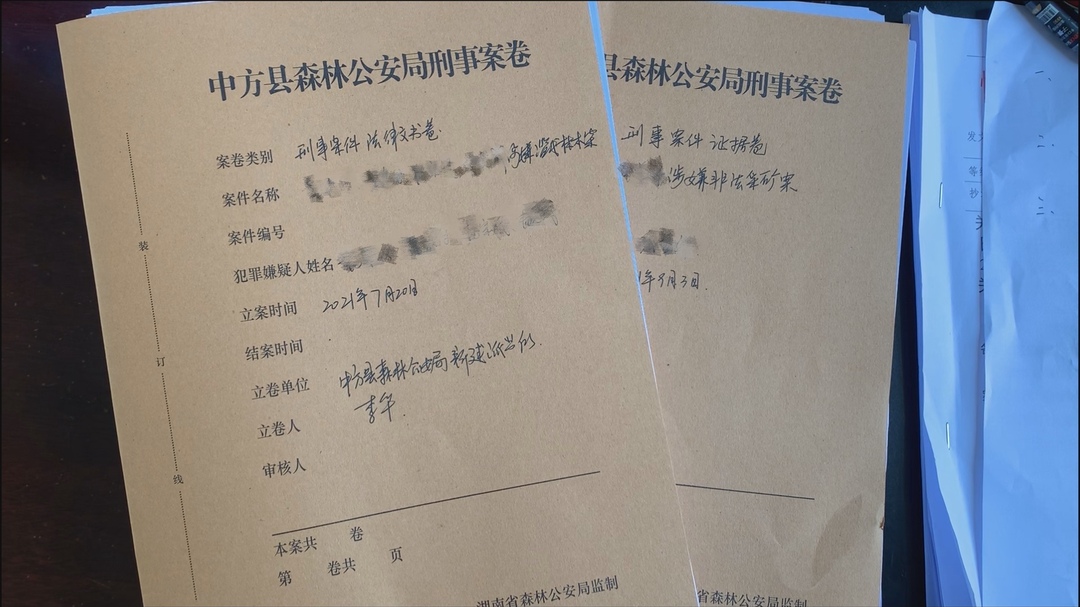 中方县森林公安局刑事案卷
案卷类别 刑事案件法律文书卷
案件名称 滥伐林木案
案件编号
犯罪嫌疑人姓名
立案时间 2021年7月20日
结案时间
立卷单位 中方县森林公安局新建派出所
立卷人 李军
审核人
本案共 卷
第 卷共 页
湖南省森林公安局监制
装
订
线
县森林公安局刑事案卷
刑事案件 证据卷
涉嫌非法采矿案
年9月3日
湖南省森林公安局监制
发
等
抄
关
一、
二、
二、